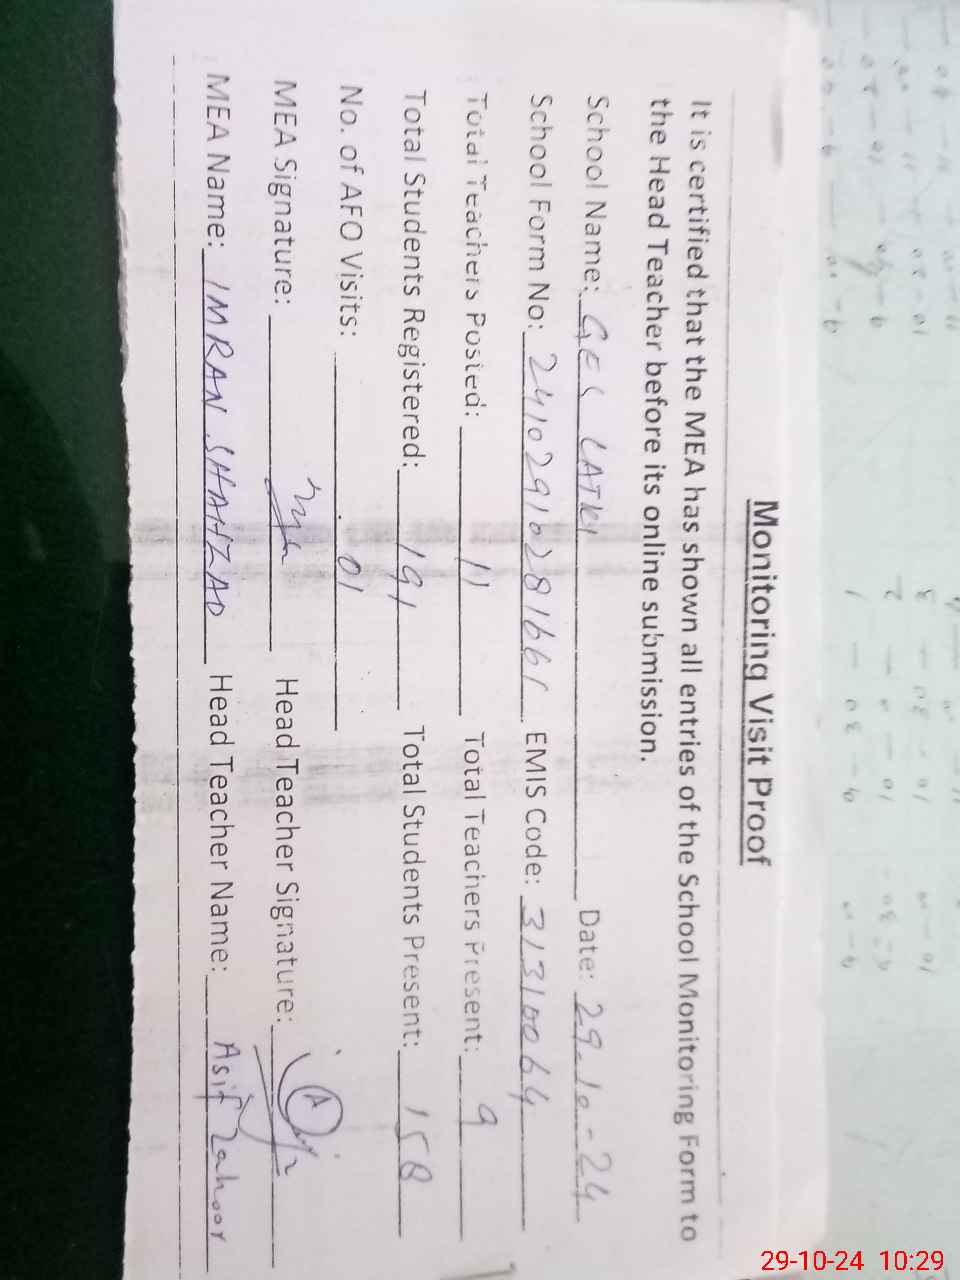 Monitoring Visit Proof
It is certified that the MEA has shown all entries of the School Monitoring Form to
the Head Teacher before its online submission.
School Name: GES LATKI Date: 29-10-24
School Form No: 24102910281661 EMIS Code: 31310064
Total Teachers Posted: 11 Total Teachers Present: 9
Total Students Registered: 191 Total Students Present: 158
No. of AFO Visits: 01
MEA Signature: Head Teacher Signature:
MEA Name: IMRAN SHAHZAD Head Teacher Name: Asif Zahoor
29-10-24 10:29